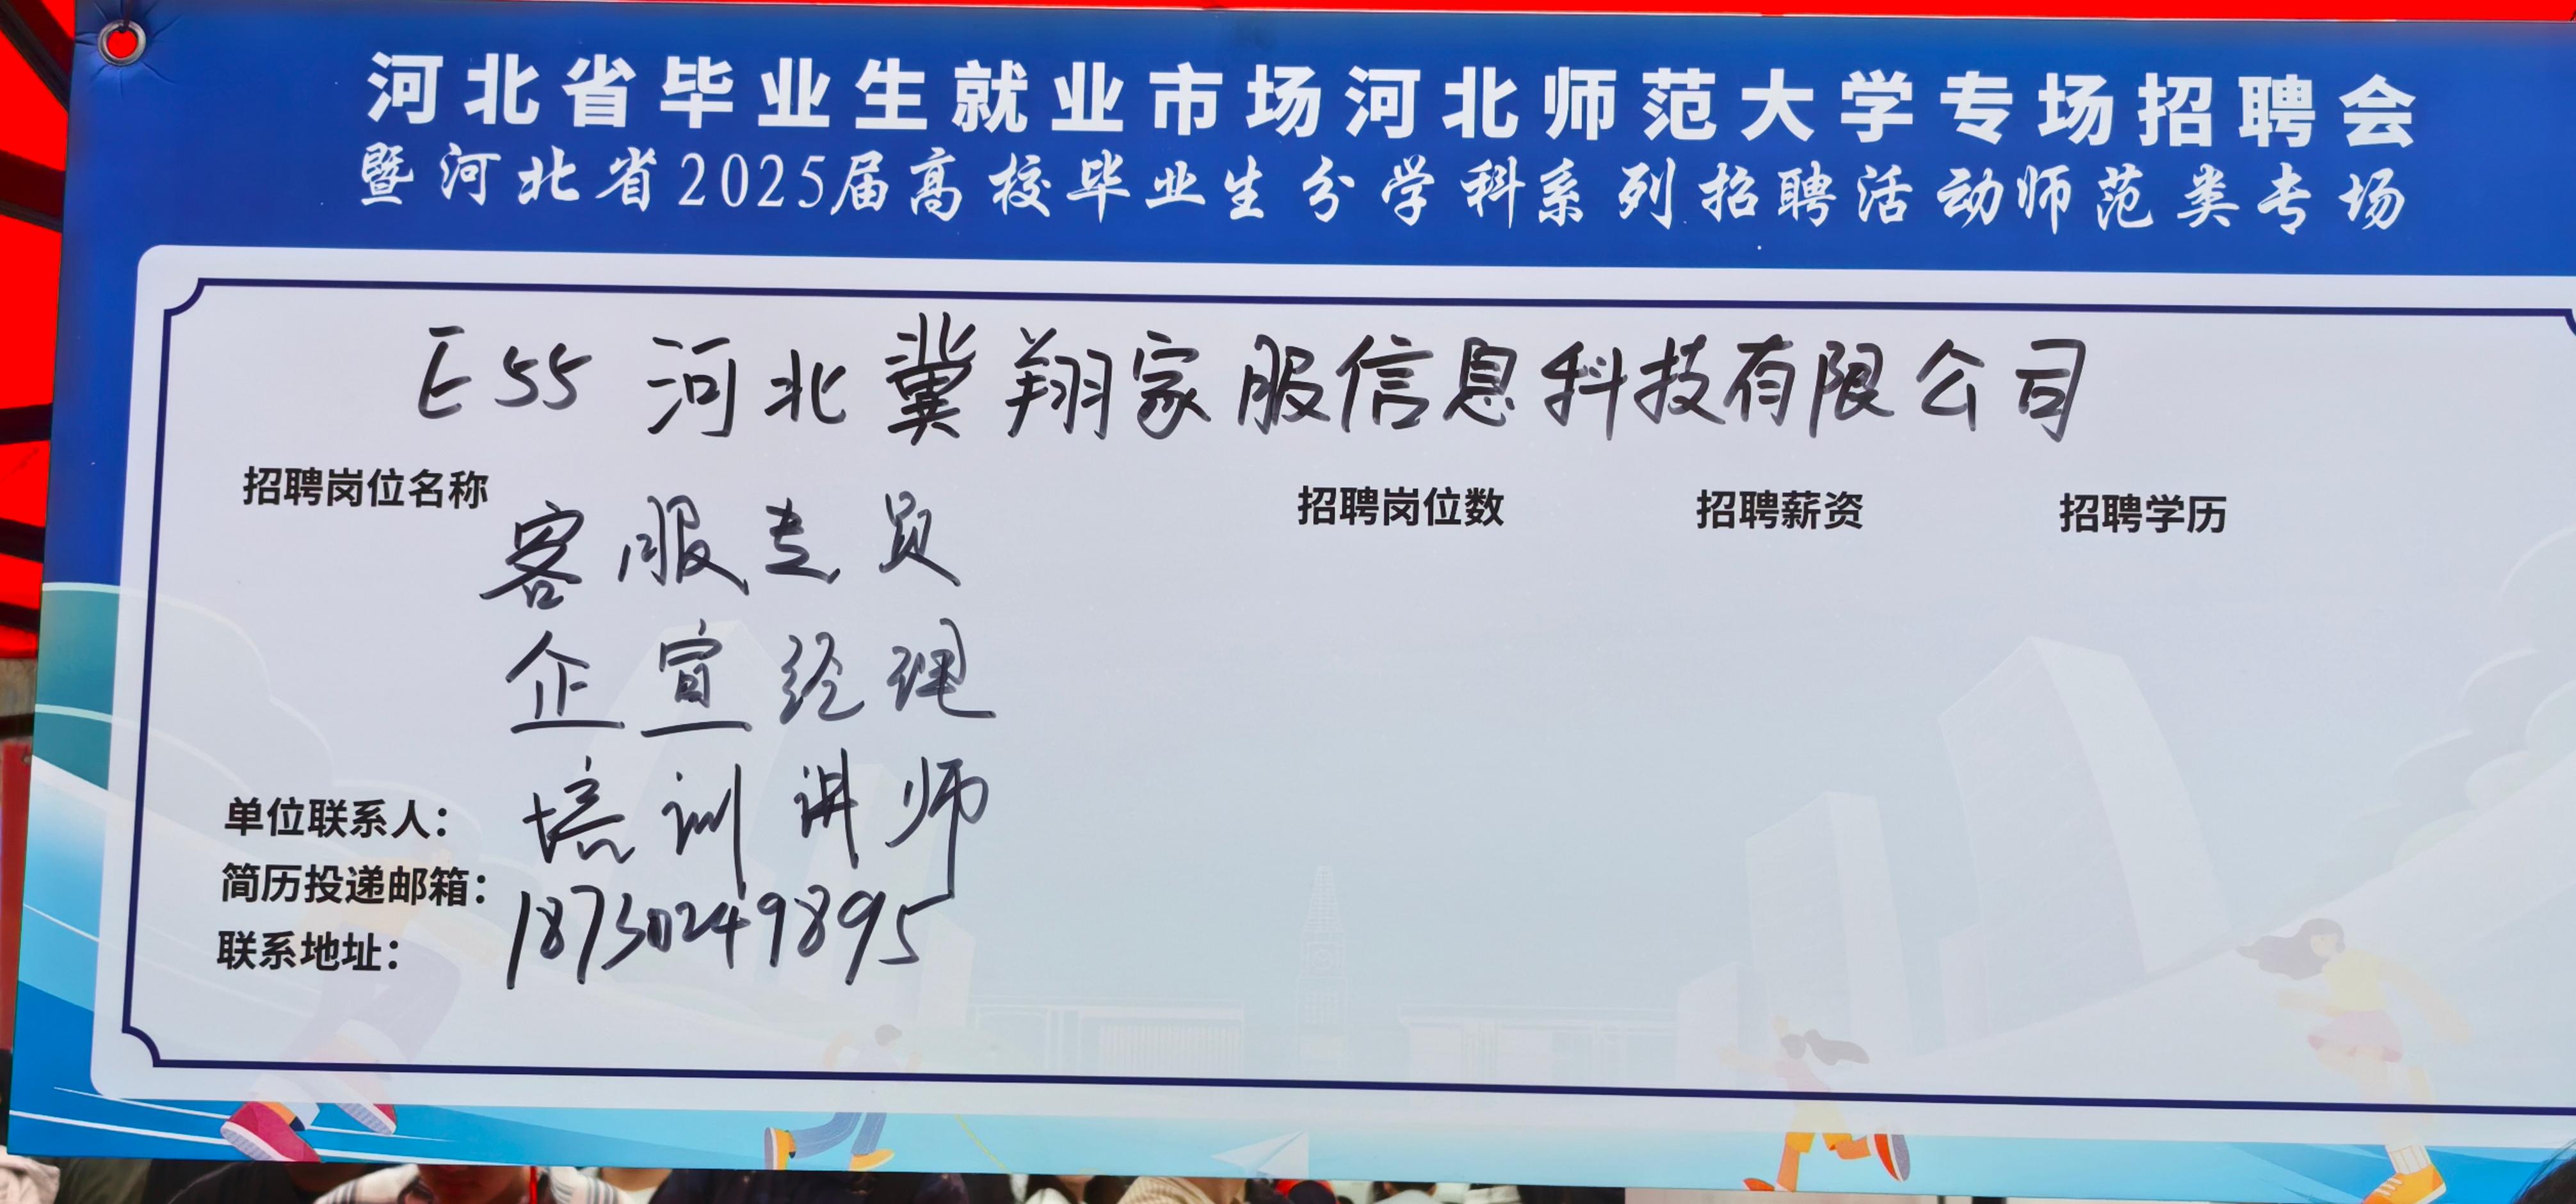 河北省毕业生就业市场河北师范大学专场招聘会
暨河北省2025届高校毕业生分学科系列招聘活动师范类专场
E55 河北冀翔家服信息科技有限公司
招聘岗位名称 招聘岗位数 招聘薪资 招聘学历
客服专员
企宣经理
培训讲师
单位联系人：
简历投递邮箱：
18730249895
联系地址：